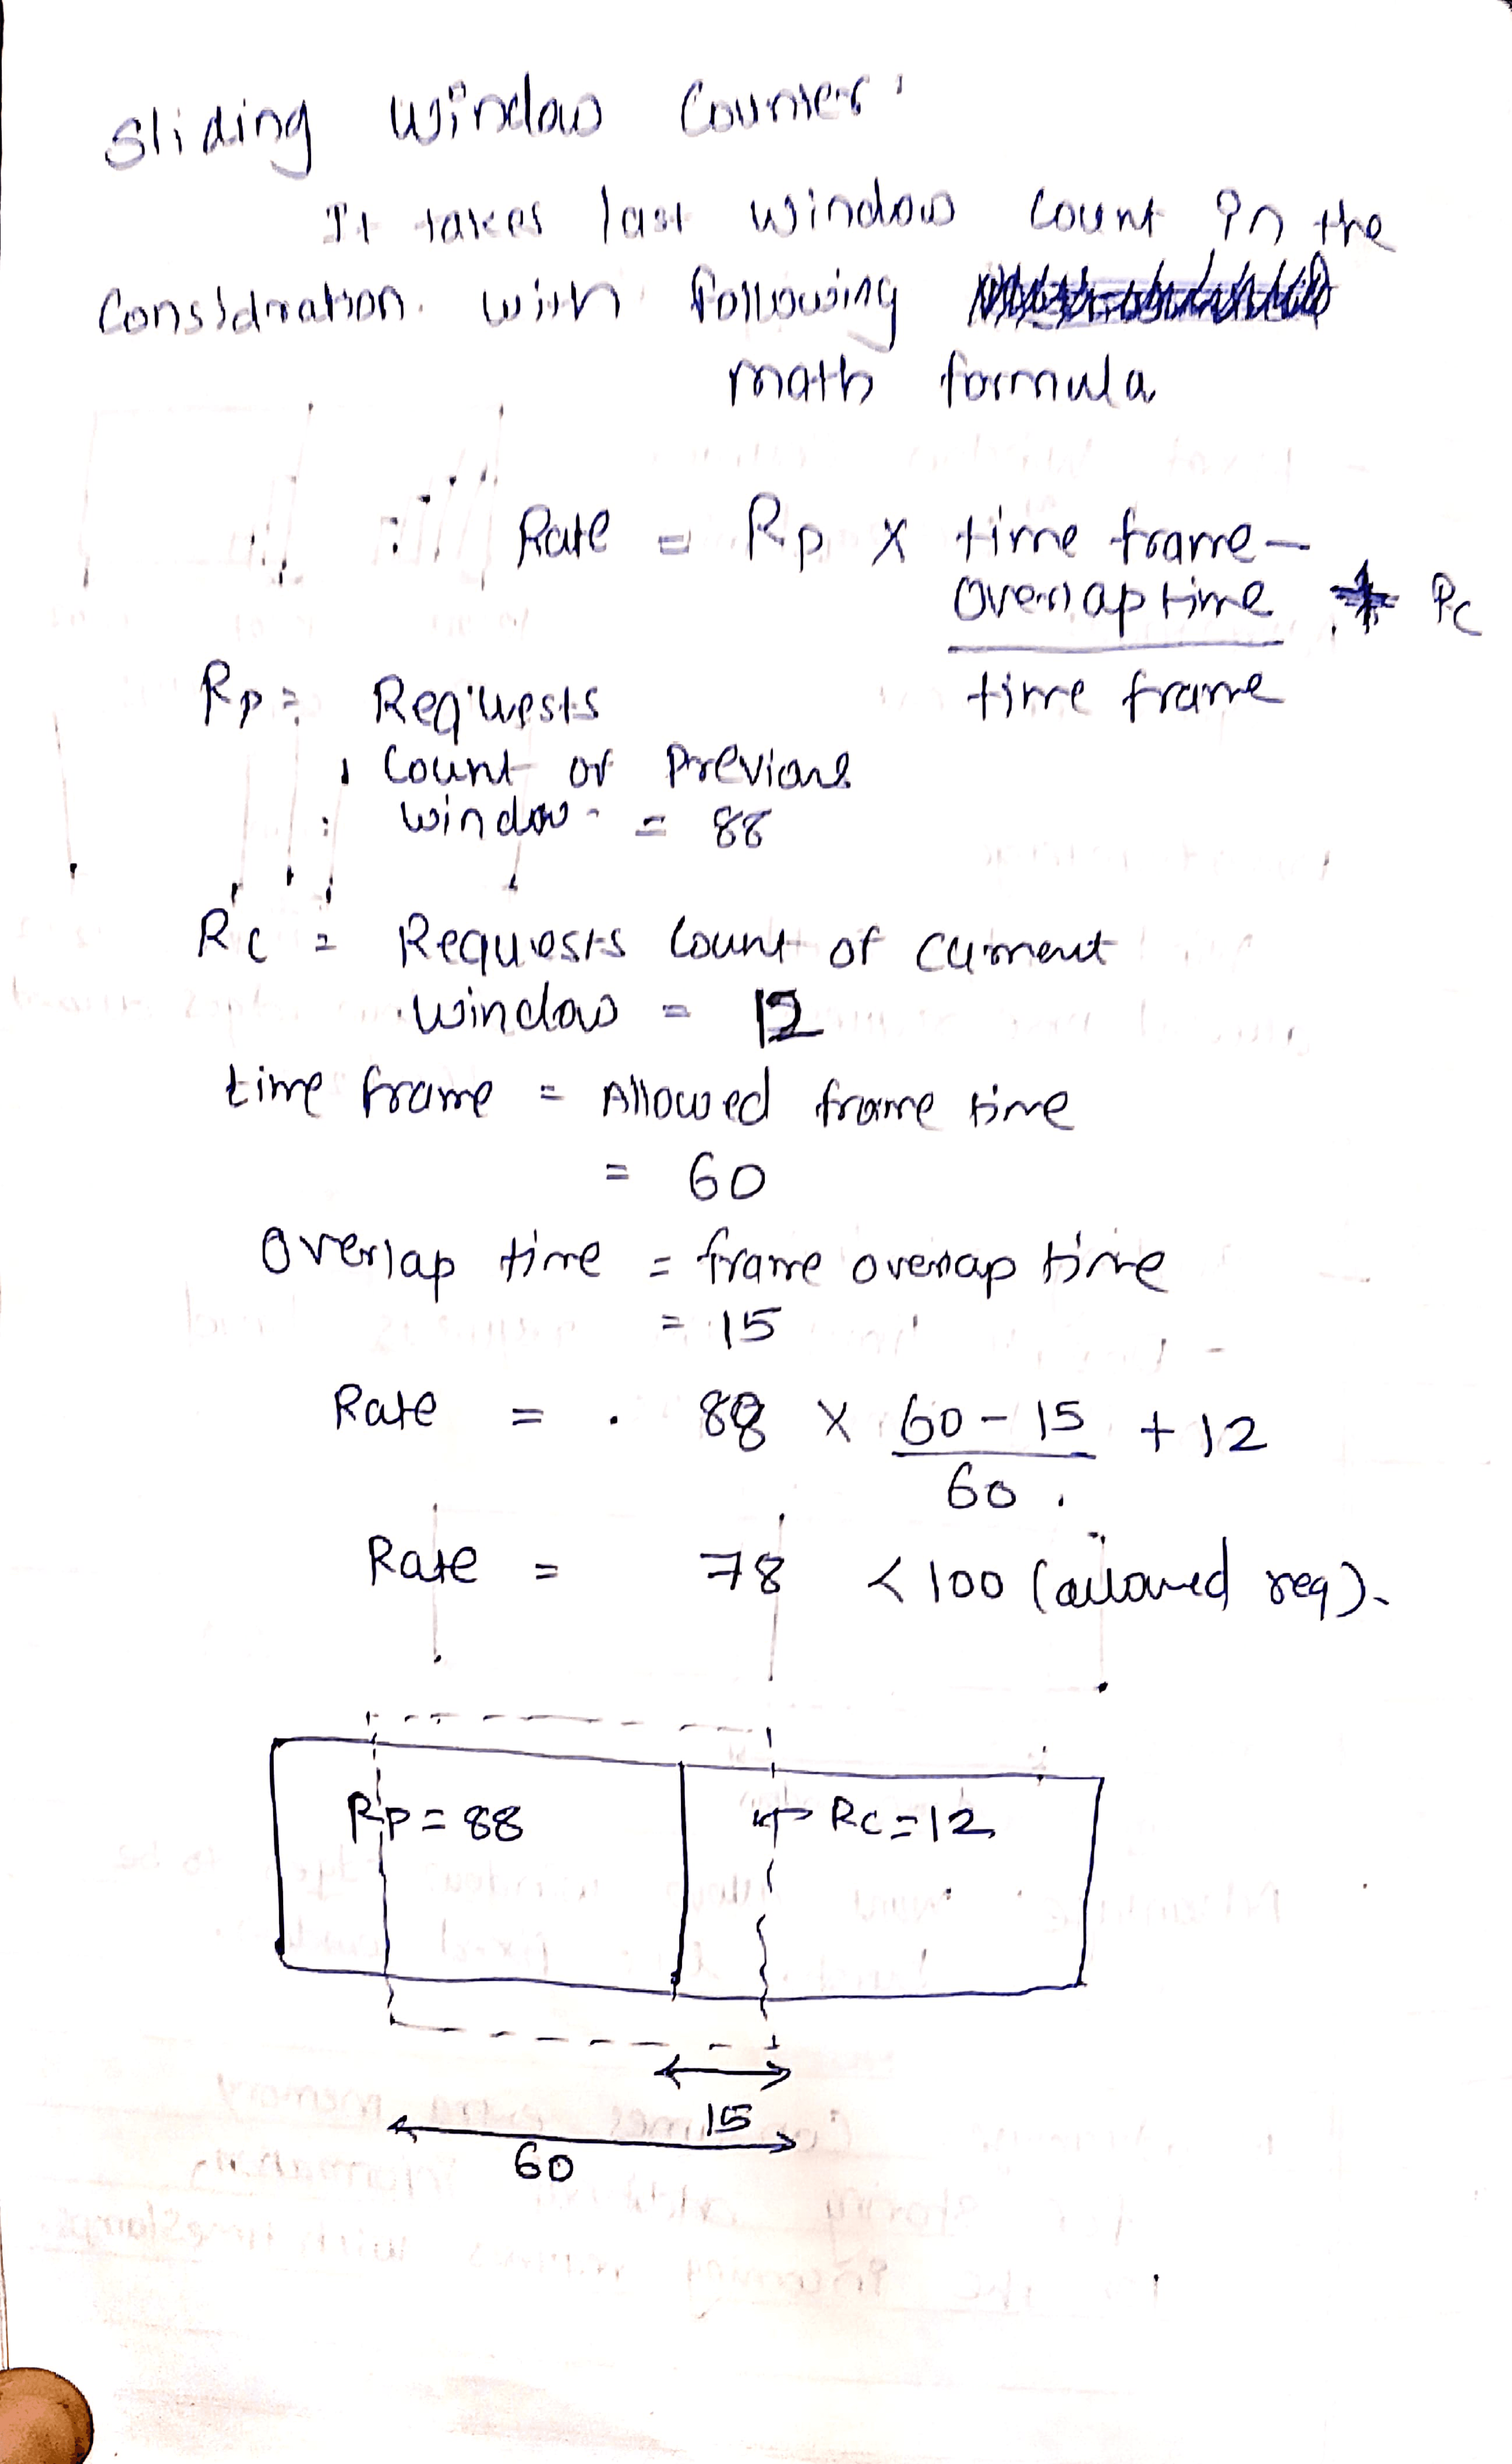 Sliding Window Counter:
It takes last window count in the
Considration with following
math formula
Rate = Rp x time frame -
overlap time + Rc
time frame
Rp = Requests
Count of Previous
window = 88
Rc = Requests Count of current
window = 12
time frame = Allowed frame time
= 60
Overlap time = frame overlap time
= 15
Rate = 88 x 60 - 15 + 12
60
Rate = 78 < 100 (allowed req).
Rp = 88
Rc = 12
15
60